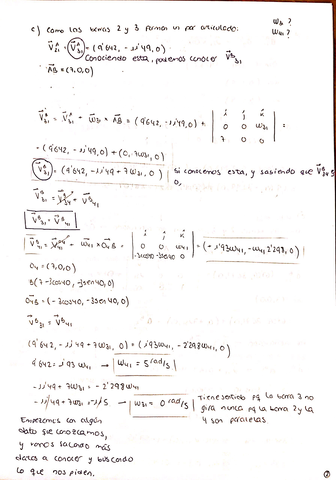 c) Como las barras 2 y 3 forman un par articulado:
ω₃₁ ?
ω₄₁ ?
V⃗ᴬ₂₁ = V⃗ᴬ₃₁ = (9'642, -11'49, 0)
Conociendo esta, podemos conocer V⃗ᴮ₃₁
AB⃗ = (7,0,0)
V⃗ᴮ₃₁ = V⃗ᴬ₃₁ + ω⃗₃₁ × AB⃗ = (9'642, -11'49, 0) + | i j k | 0 0 ω₃₁ | 7 0 0 | =
= (9'642, -11'49, 0) + (0, 7ω₃₁, 0)
V⃗ᴮ₃₁ = (9'642, -11'49 + 7ω₃₁, 0) si conocemos esta, y sabiendo que
0,
V⃗ᴮ₃₁ = V⃗ᴮ₃₄ + V⃗ᴮ₄₁
V⃗ᴮ₃₁ = V⃗ᴮ₄₁
ω₄₁ × O₄B = | i j k | 0 0 ω₄₁ | -3cos40 -3sen40 0 | = (+1'93ω₄₁, -ω₄₁2'298, 0)
O₄ = (7,0,0)
B(7-3cos40, -3sen40, 0)
O₄B = (-3cos40, -3sen40, 0)
V⃗ᴮ₃₁ = V⃗ᴮ₄₁
(9'642, -11'49 + 7ω₃₁, 0) = (1'93ω₄₁, -2'298ω₄₁, 0)
9'642 = 1'93 ω₄₁ → ω₄₁ = 5 rad/s
-11'49 + 7ω₃₁ = -2'298ω₄₁
-11'49 + 7ω₃₁ = → ω₃₁ = 0 rad/s
Tiene sentido pq la barra 3 no
gira nunca pq la barra 2 y la
4 son paralelas
Empezamos con algún
dato que conozcamos,
y vamos sacando más
datos a conocer y buscando
lo que nos piden.